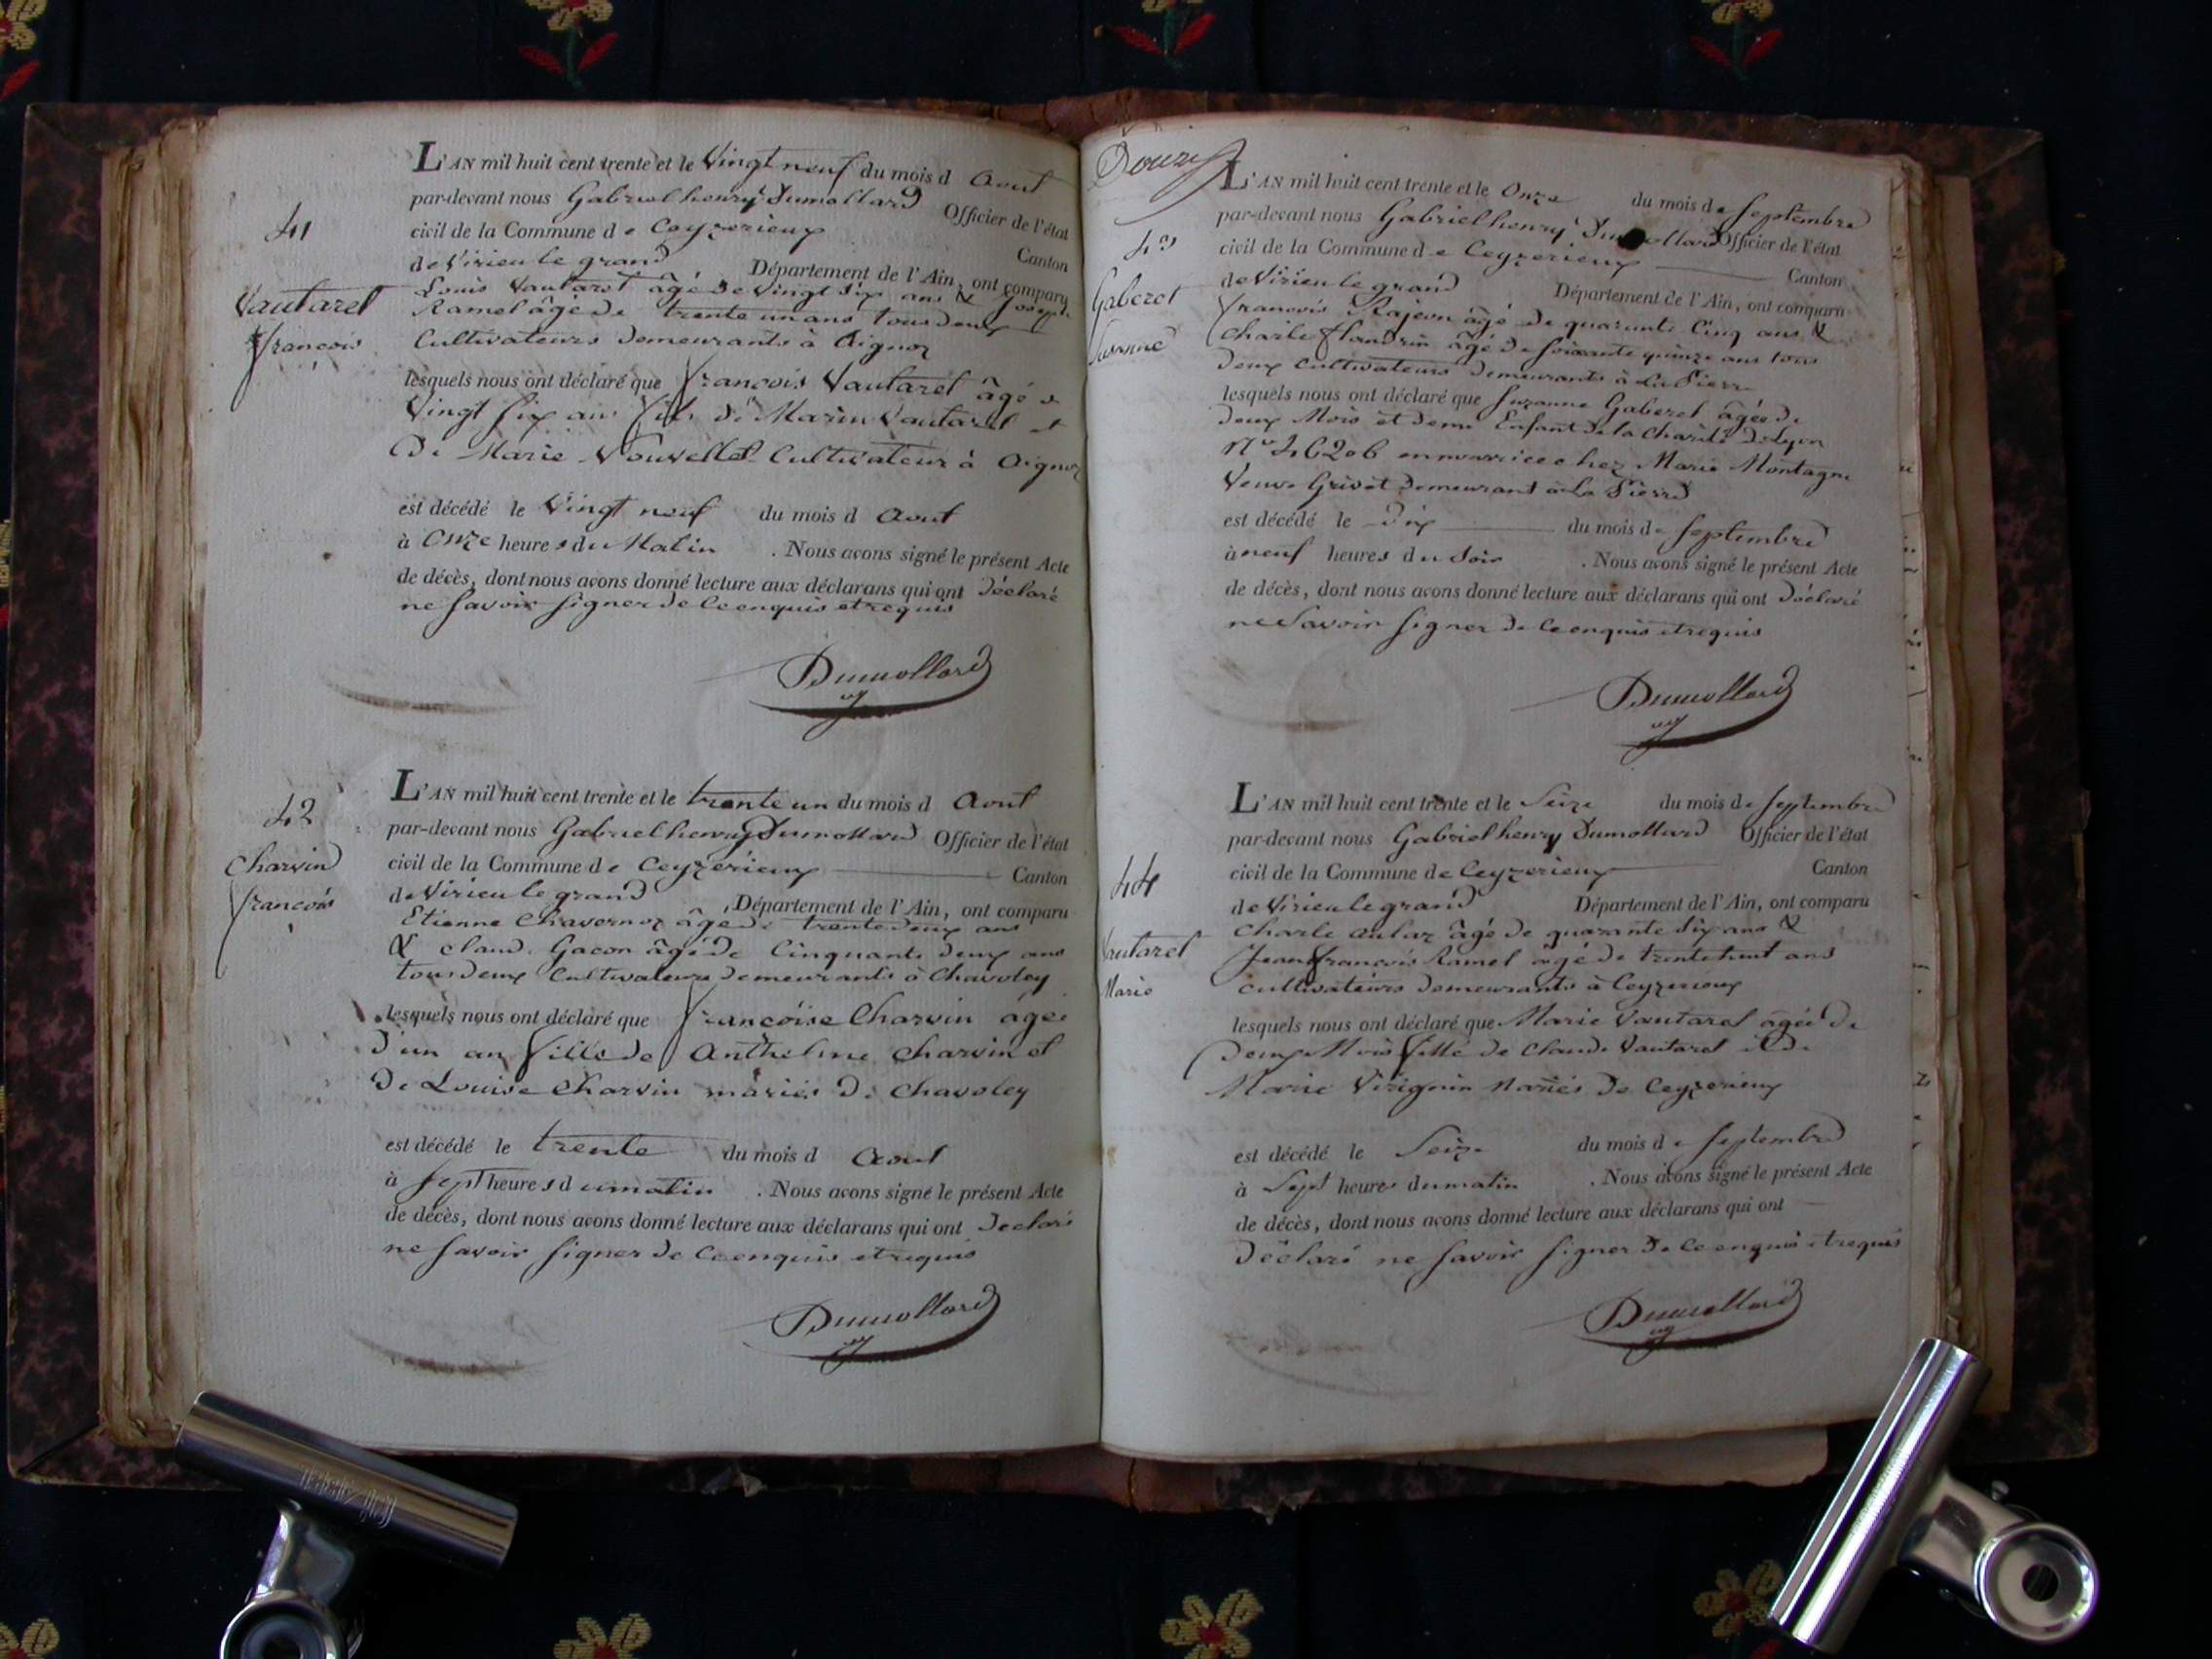 41
Vautaret
françois
L'AN mil huit cent trente et le Vingt neuf du mois d Aout
par-devant nous Gabriel henry Dumollard Officier de l'état
civil de la Commune d e Ceyzerieux Canton
de Virieu le grand Département de l'Ain, ont comparu
Louis Vautaret âgé de Vingt six ans & Joseph
Ramel âgé de trente un ans tous deux
Cultivateurs demeurants à Aignoz
lesquels nous ont déclaré que françois Vautaret âgé de
Vingt six ans fils de Marin Vautaret et
De Marie Vouvellet Cultivateur à Aignoz
est décédé le Vingt neuf du mois d Aout
à Onze heures du Matin . Nous avons signé le présent Acte
de décès, dont nous avons donné lecture aux déclarans qui ont Déclaré
ne savoir signer de ce enquis et requis
Dumollard
42
Charvin
françois
L'AN mil huit cent trente et le trente un du mois d Aout
par-devant nous Gabriel henry Dumollard Officier de l'état
civil de la Commune d e Ceyzerieux Canton
de Virieu le grand Département de l'Ain, ont comparu
Etienne Chavernoz âgé de trente deux ans
& claude Gacon âgé de Cinquante deux ans
tous deux Cultivateurs demeurants à Chavoley
lesquels nous ont déclaré que françoise Charvin âgée
d'un an fille de Anthelme Charvin et
de Louise Charvin mariés de Chavoley
est décédé le trente du mois d Aout
à sept heures du matin . Nous avons signé le présent Acte
de décès, dont nous avons donné lecture aux déclarans qui ont Déclaré
ne savoir signer de ce enquis et requis
Dumollard
Douze
43
Gaberet
Suzanne
L'AN mil huit cent trente et le Onze du mois de septembre
par-devant nous Gabriel henry Dumollard Officier de l'état
civil de la Commune d e Ceyzerieux Canton
de Virieu le grand Département de l'Ain, ont comparu
françois Rajeon âgé de quarante Cinq ans &
Charle flandrin âgé de soixante quinze ans tous
deux Cultivateurs demeurants à La Pierre
lesquels nous ont déclaré que Suzanne Gaberet âgée de
deux Mois et demi Enfant de la Charité de Lyon
N° 46206 en nourrice chez Marie Montagne
Veuve Grivet demeurant à la Pierre
est décédé le Dix du mois de septembre
à neuf heures du Soir . Nous avons signé le présent Acte
de décès, dont nous avons donné lecture aux déclarans qui ont Déclaré
ne Savoir signer de ce enquis et requis
Dumollard
44
Vautaret
Marie
L'AN mil huit cent trente et le Seize du mois de septembre
par-devant nous Gabriel henry Dumollard Officier de l'état
civil de la Commune de Ceyzerieux Canton
de Virieu le grand Département de l'Ain, ont comparu
Charle Aulaz âgé de quarante six ans &
Jean françois Ramel âgé de trente huit ans
cultivateurs demeurants à Ceyzerieux
lesquels nous ont déclaré que Marie Vautaret âgée de
deux Mois fille de Claude Vautaret et de
Marie Virignin Mariés de Ceyzerieux
est décédé le Seize du mois d e septembre
à Sept heures du matin . Nous avons signé le présent Acte
de décès, dont nous avons donné lecture aux déclarans qui ont
déclaré ne savoir signer de ce enquis et requis
Dumollard